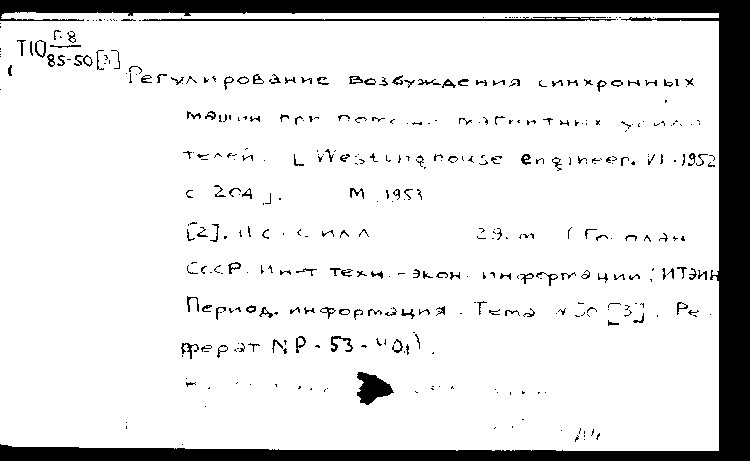 Т10 П-8
85-50[3]
Регулирование возбуждения синхронных
машин при помощи магнитных усили
телей. [Westinghouse engineer. VI. 1952
с 204]. М. 1953
[2]. 11 с. с илл 29. м (Гос. план
СССР. Ин-т техн.-экон. информации (ИТЭИН
Период. информация. Тема № 50 [3]. Ре-
ферат № Р-53-